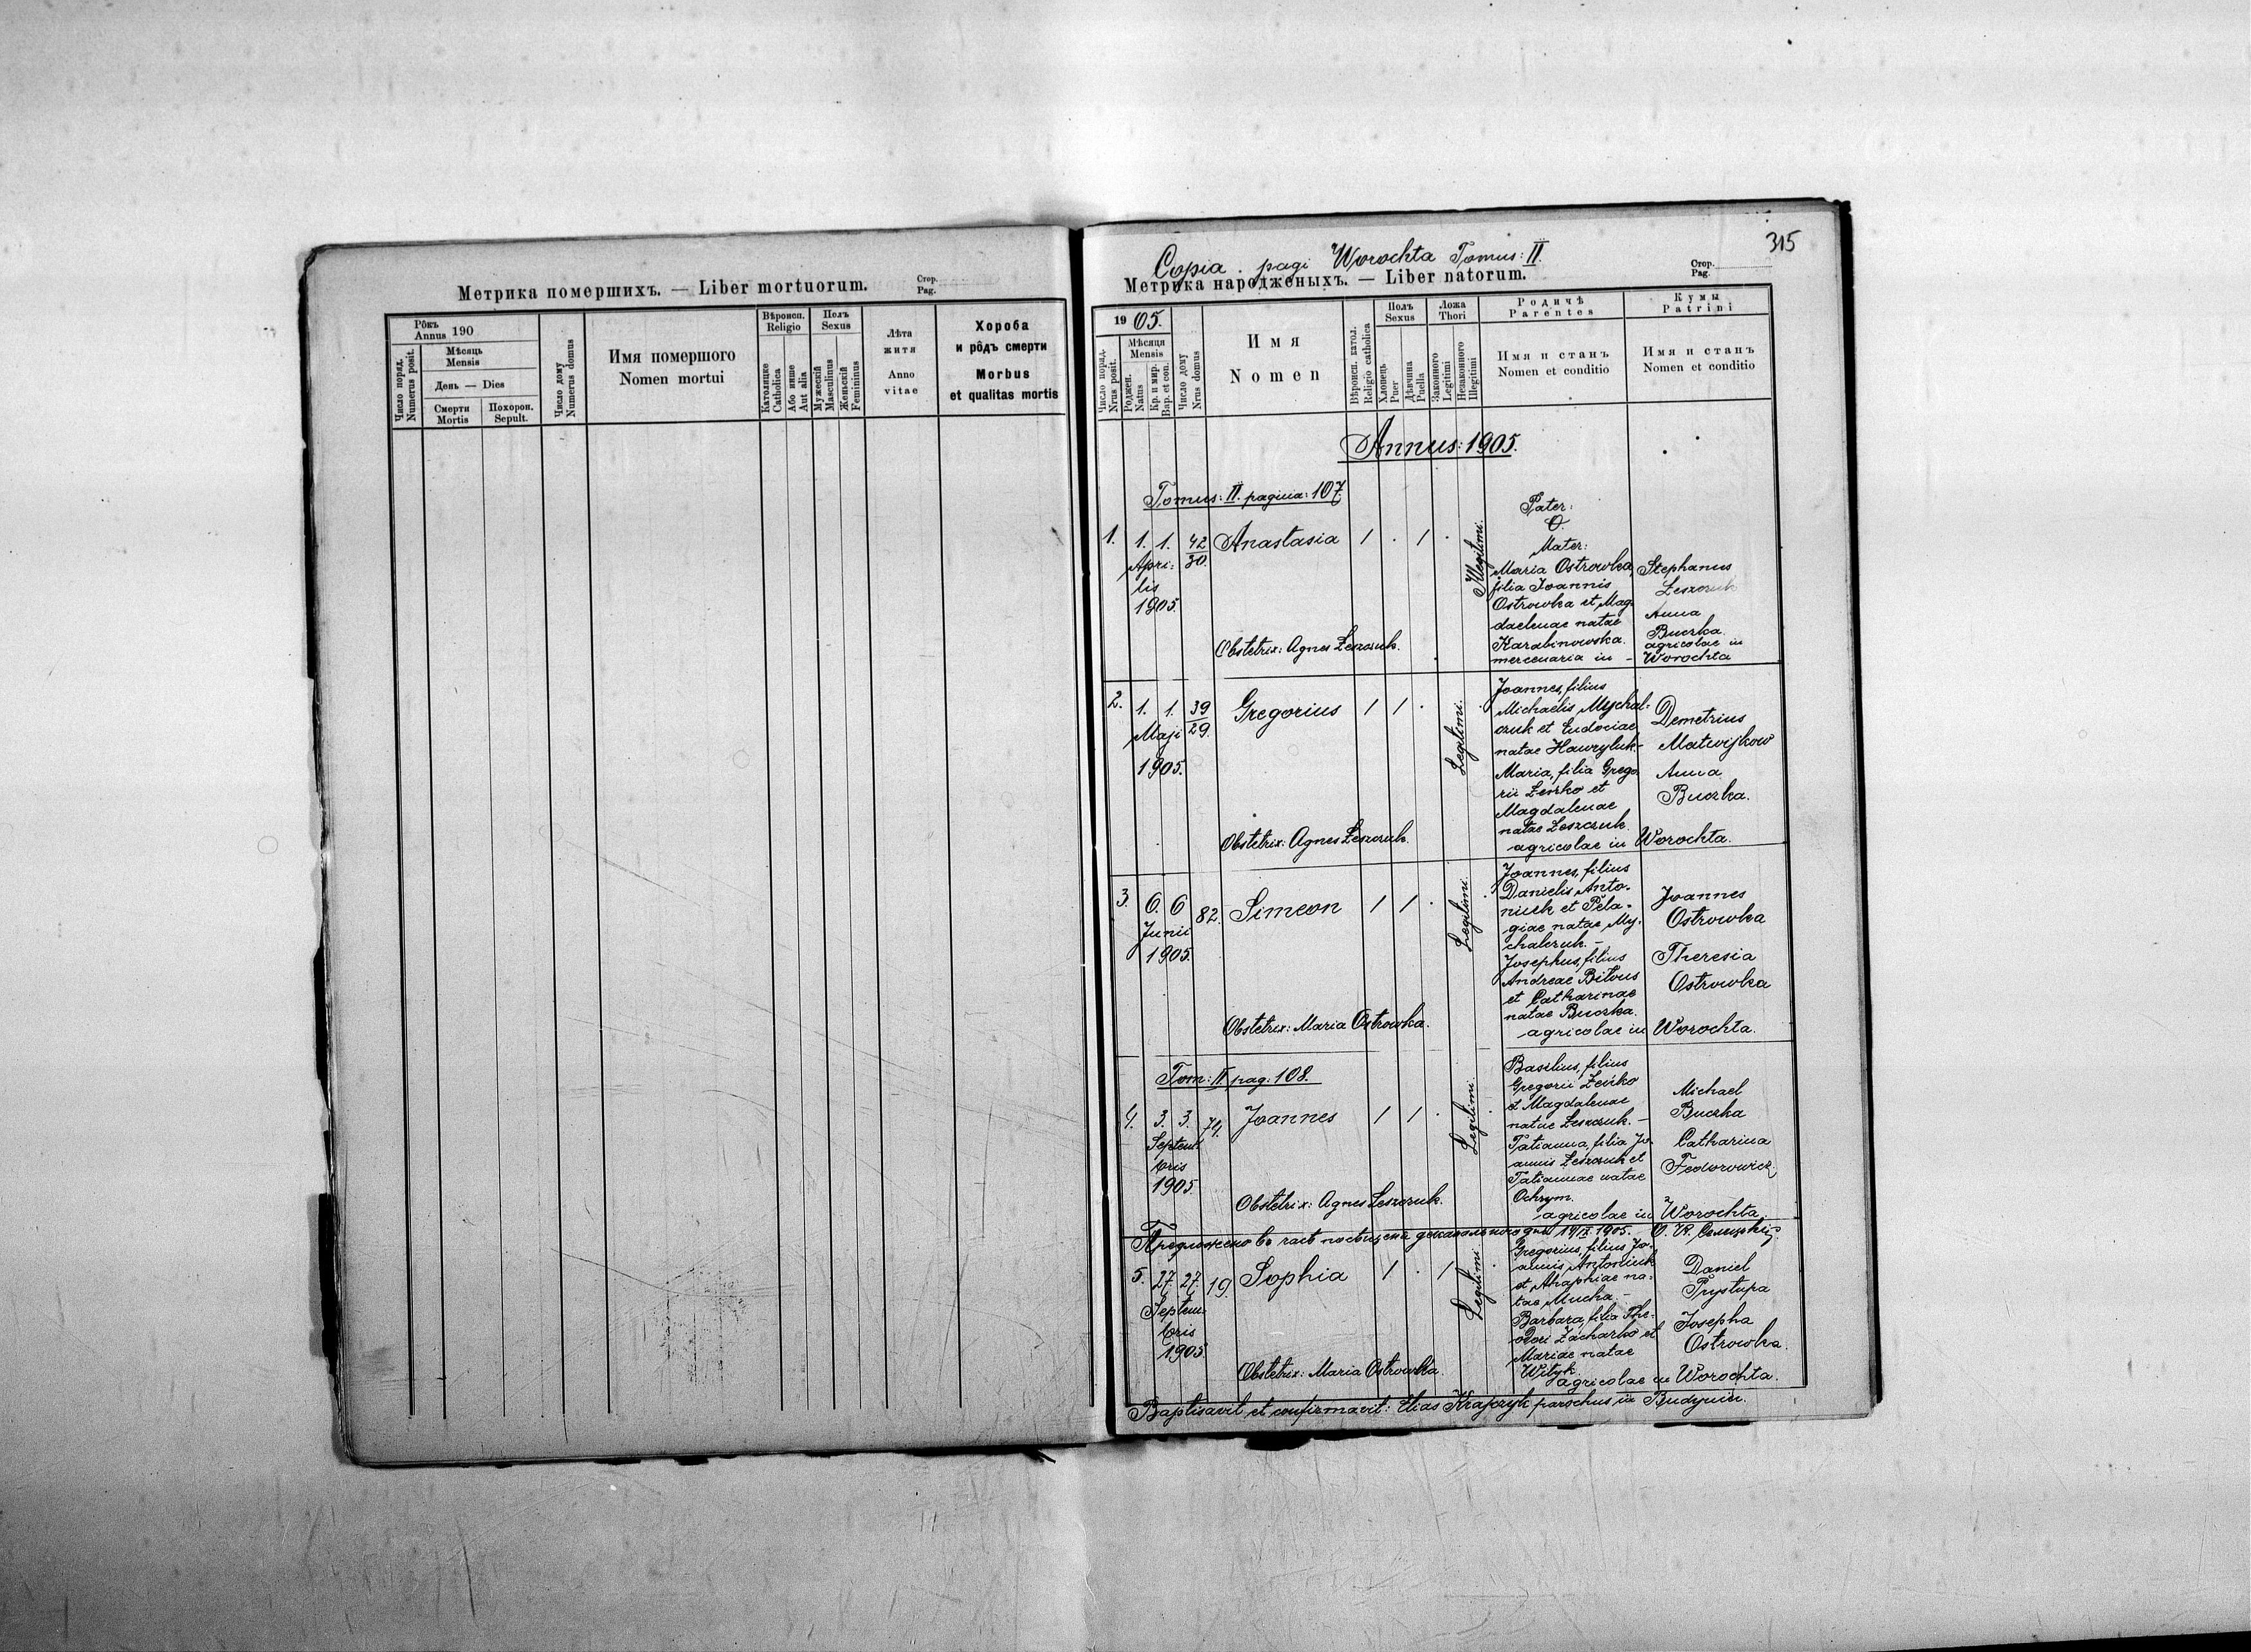 Метрика помершихъ. — Liber mortuorum.
Стор.
Pag.
Рôкъ
Annus 190
Мѣсяць
Mensis
День — Dies
Смерти
Mortis
Похорон.
Sepult.
Число поряд.
Numerus posit.
Число дому
Numerus domus
Имя помершого
Nomen mortui
Вѣроисп.
Religio
Католицке
Catholica
Або инше
Aut alia
Полъ
Sexus
Мужескій
Masculinus
Женьскій
Femininus
Лѣта
житя
Anno
vitae
Хороба
и рôдъ смерти
Morbus
et qualitas mortis
315
Copia pagi Worochta Tomus: II.
Метрика народженыхъ. — Liber natorum.
Стор.
Pag.
1905.
Число поряд.
Nrus posit.
Мѣсяця
Mensis
Роджен.
Natus
Кр. и мир.
Bap. et con.
Число дому
Nrus domus
Имя
Nomen
Вѣроисп. катол.
Religio catholica
Полъ
Sexus
Хлопець
Puer
Дѣвчина
Puella
Ложа
Thori
Законного
Legitimi
Незаконного
Illegitimi
Родичѣ
Parentes
Имя и станъ
Nomen et conditio
Кумы
Patrini
Имя и станъ
Nomen et conditio
Annus: 1905.
Tomus: II. pagina: 107.
1. 1. 1. 42/30. Anastasia 1 . 1 .
Apri-
lis
1905.
Illegitimi.
Pater:
O.
Mater:
Maria Ostrowka,
filia Joannis
Ostrowka et Mag-
daelenae natae
Karabinowska.
mercenaria in -
Stephanus
Leszczuk
Anna
Buczka.
agricolae in
Worochta
Obstetrix: Agnes Leszczuk.
2. 1. 1. 39/29. Gregorius 1 1 .
Maji
1905.
Legitimi.
Joannes, filius
Michaelis Mychal-
czuk et Eudociae
natae Hawryluk -
Maria, filia Grego-
rii Zeńko et
Magdalenae
natae Leszczuk.
agricolae in Worochta.
Demetrius
Matwijkow
Anna
Buczka.
Obstetrix: Agnes Leszczuk.
3. 6. 6 82. Simeon 1 1 .
Junii
1905.
Legitimi.
Joannes, filius
Danielis Anto-
niuk et Pela-
giae natae My-
chalczuk. -
Josephus, filius
Andreae Bitous
et Catharinae
natae Buczka.
agricolae in Worochta.
Joannes
Ostrowka
Theresia
Ostrowka
Obstetrix: Maria Ostrowka.
Tom: II pag. 108.
4. 3. 3. 74. Joannes 1 1 .
Septem-
bris
1905.
Legitimi.
Basilius, filius
Gregorii Zeńko
et Magdalenae
natae Leszczuk. -
Tatianna, filia Jo-
annis Leszczuk et
Tatiannae natae
Ochrym.
agricolae in Worochta.
Michael
Buczka
Catharina
Fedorowicz
Obstetrix: Agnes Leszczuk.
Предложено въ часѣ посѣщенія деканального дня 1905.
5. 27. 27. 19. Sophia 1 . 1
Septem-
bris
1905.
Legitimi
Gregorius, filius Jo-
annis Antoniuk
et Ahaphiae na-
tae Mucha. -
Barbara, filia The-
odori Zacharko et
Mariae natae
Wityk.
agricolae in Worochta.
Daniel
Prystupa
Josepha
Ostrowka.
Obstetrix: Maria Ostrowka.
Baptisavit et confirmavit: Elias Krajczyk parochus in Budynin.